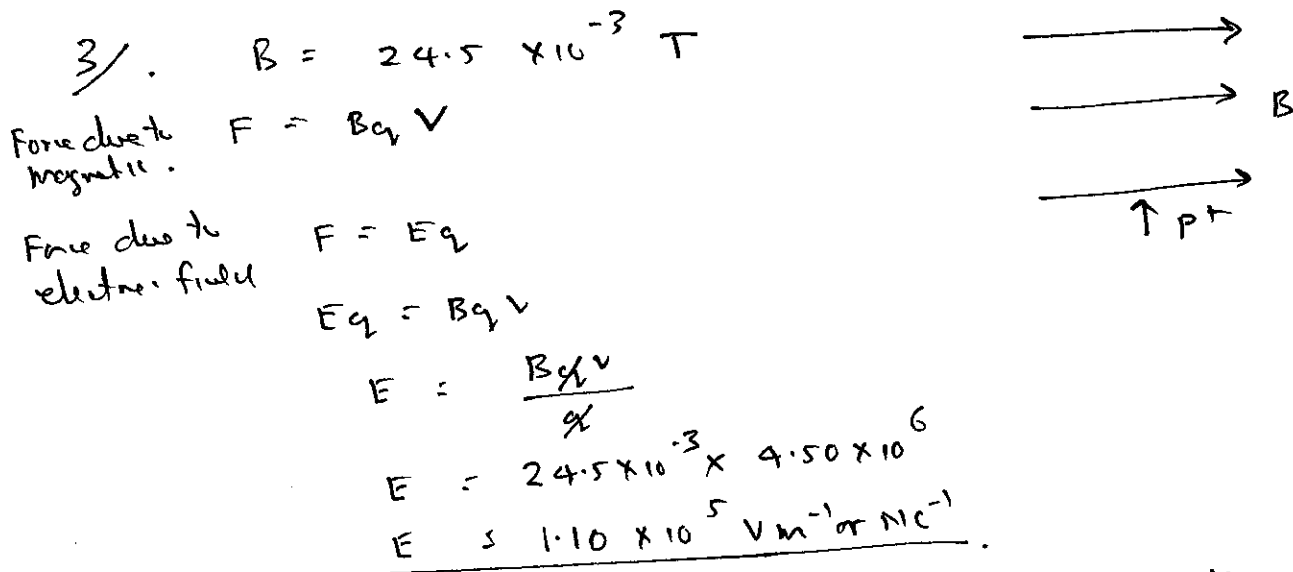 3/. B = 24.5 × 10⁻³ T
Force due to magnetic. F = BqV
Force due to electric field F = Eq
Eq = Bqv
E = Bqv / q
E = 24.5 × 10⁻³ × 4.50 × 10⁶
E = 1.10 × 10⁵ Vm⁻¹ or NC⁻¹.
B
↑ p+